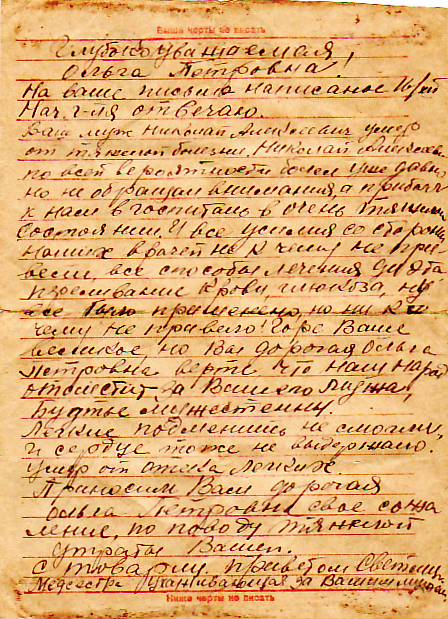 Выше черты не писать
Глубокоуважаемая
Ольга Петровна!
На ваше письмо написаное
Нач. г-ля отвечаю.
Ваш муж Николай Алексеевич умер
от тяжелой болезни. Николай
по всей вероятности болел уже давно
но не обращал внимания, а прибыл
к нам в госпиталь в очень тяжелом
состоянии. И все усилия со стороны
наших врачей не к чему не при-
вели, все способы лечения
переливание крови, глюкоза, ну
все было применено, но ни к
чему не привело! Горе Ваше
великое, но Вы дорогая Ольга
Петровна верте что наш народ
отомстит за Вашего мужа,
Будьте мужественны.
Легкие подменишь не смогли,
и сердце тоже не выдержало.
Умер от отека легких.
Приносим Вам дорогая
Ольга Петровна свое сожа-
ление, по поводу тяжелой
утраты Вашей.
с товарищ. приветом
Медсестра ухаживающая за Вашим мужем
Ниже черты не писать